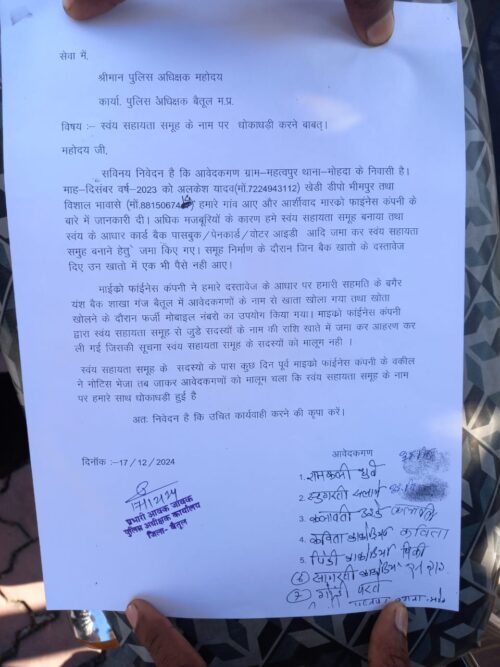 सेवा में,
श्रीमान पुलिस अधिक्षक महोदय
कार्या. पुलिस अधिक्षक बैतूल म.प्र.
विषय :– स्वंय सहायता समूह के नाम पर धोकाधड़ी करने बाबत्।
महोदय जी,
सविनय निवेदन है कि आवेदकगण ग्राम-महत्वपुर थाना-मोहदा के निवासी है।
माह-दिसंबर वर्ष-2023 को अलकेश यादव(मों.7224943112) खेडी डीपो भीमपुर तथा
विशाल मावासे (मों.88150674) हमारे गांव आए और आर्शीवाद मारको फाईनेंस कंपनी के
बारे में जानकारी दी। अधिक मजबूरियों के कारण हमे स्वंय सहायता समूह बनाया तथा
स्वंय के आधार कार्ड बैंक पासबुक/पेनकार्ड/वोटर आइडी आदि जमा कर स्वंय सहायता
समुह बनाने हेतु जमा किए गए। समूह निर्माण के दौरान जिन बैक खातो के दस्तावेज
दिए उन खातो में एक भी पैसे नही आए।
माईको फाईनेंस कंपनी ने हमारे दस्तावेज के आधार पर हमारी सहमति के बगैर
यंश बैक शाखा गंज बैतूल में आवेदकगणों के नाम से खाता खोला गया तथा खोता
खोलने के दौरान फर्जी मोबाइल नंबरो का उपयोग किया गया। माइको फाईनेंस कंपनी
द्वारा स्वंय सहायता समूह से जुडे सदस्यों के नाम की राशि खाते में जमा कर आहरण कर
ली गई जिसकी सूचना स्वंय सहायता समूह के सदस्यों को मालूम नही ।
स्वंय सहायता समूह के सदस्यो के पास कुछ दिन पूर्व माइको फाईनेस कंपनी के वकील
ने नोटिस भेजा तब जाकर आवेदकगणों को मालूम चला कि स्वंय सहायता समूह के नाम
पर हमारे साथ धोकाधड़ी हुई है
अतः निवेदन है कि उचित कार्यवाही करने की कृपा करें।
दिनॉक :–17/12/2024
आवेदकगण
1. रामकली धुर्वे
2.
3. कलावती
4. कविता काकोडिया कविता
5. पिंकी काकोडिया पिंकी
6
7
प्रभारी आवक जावक
पुलिस अधीक्षक कार्यालय
जिला- बैतूल